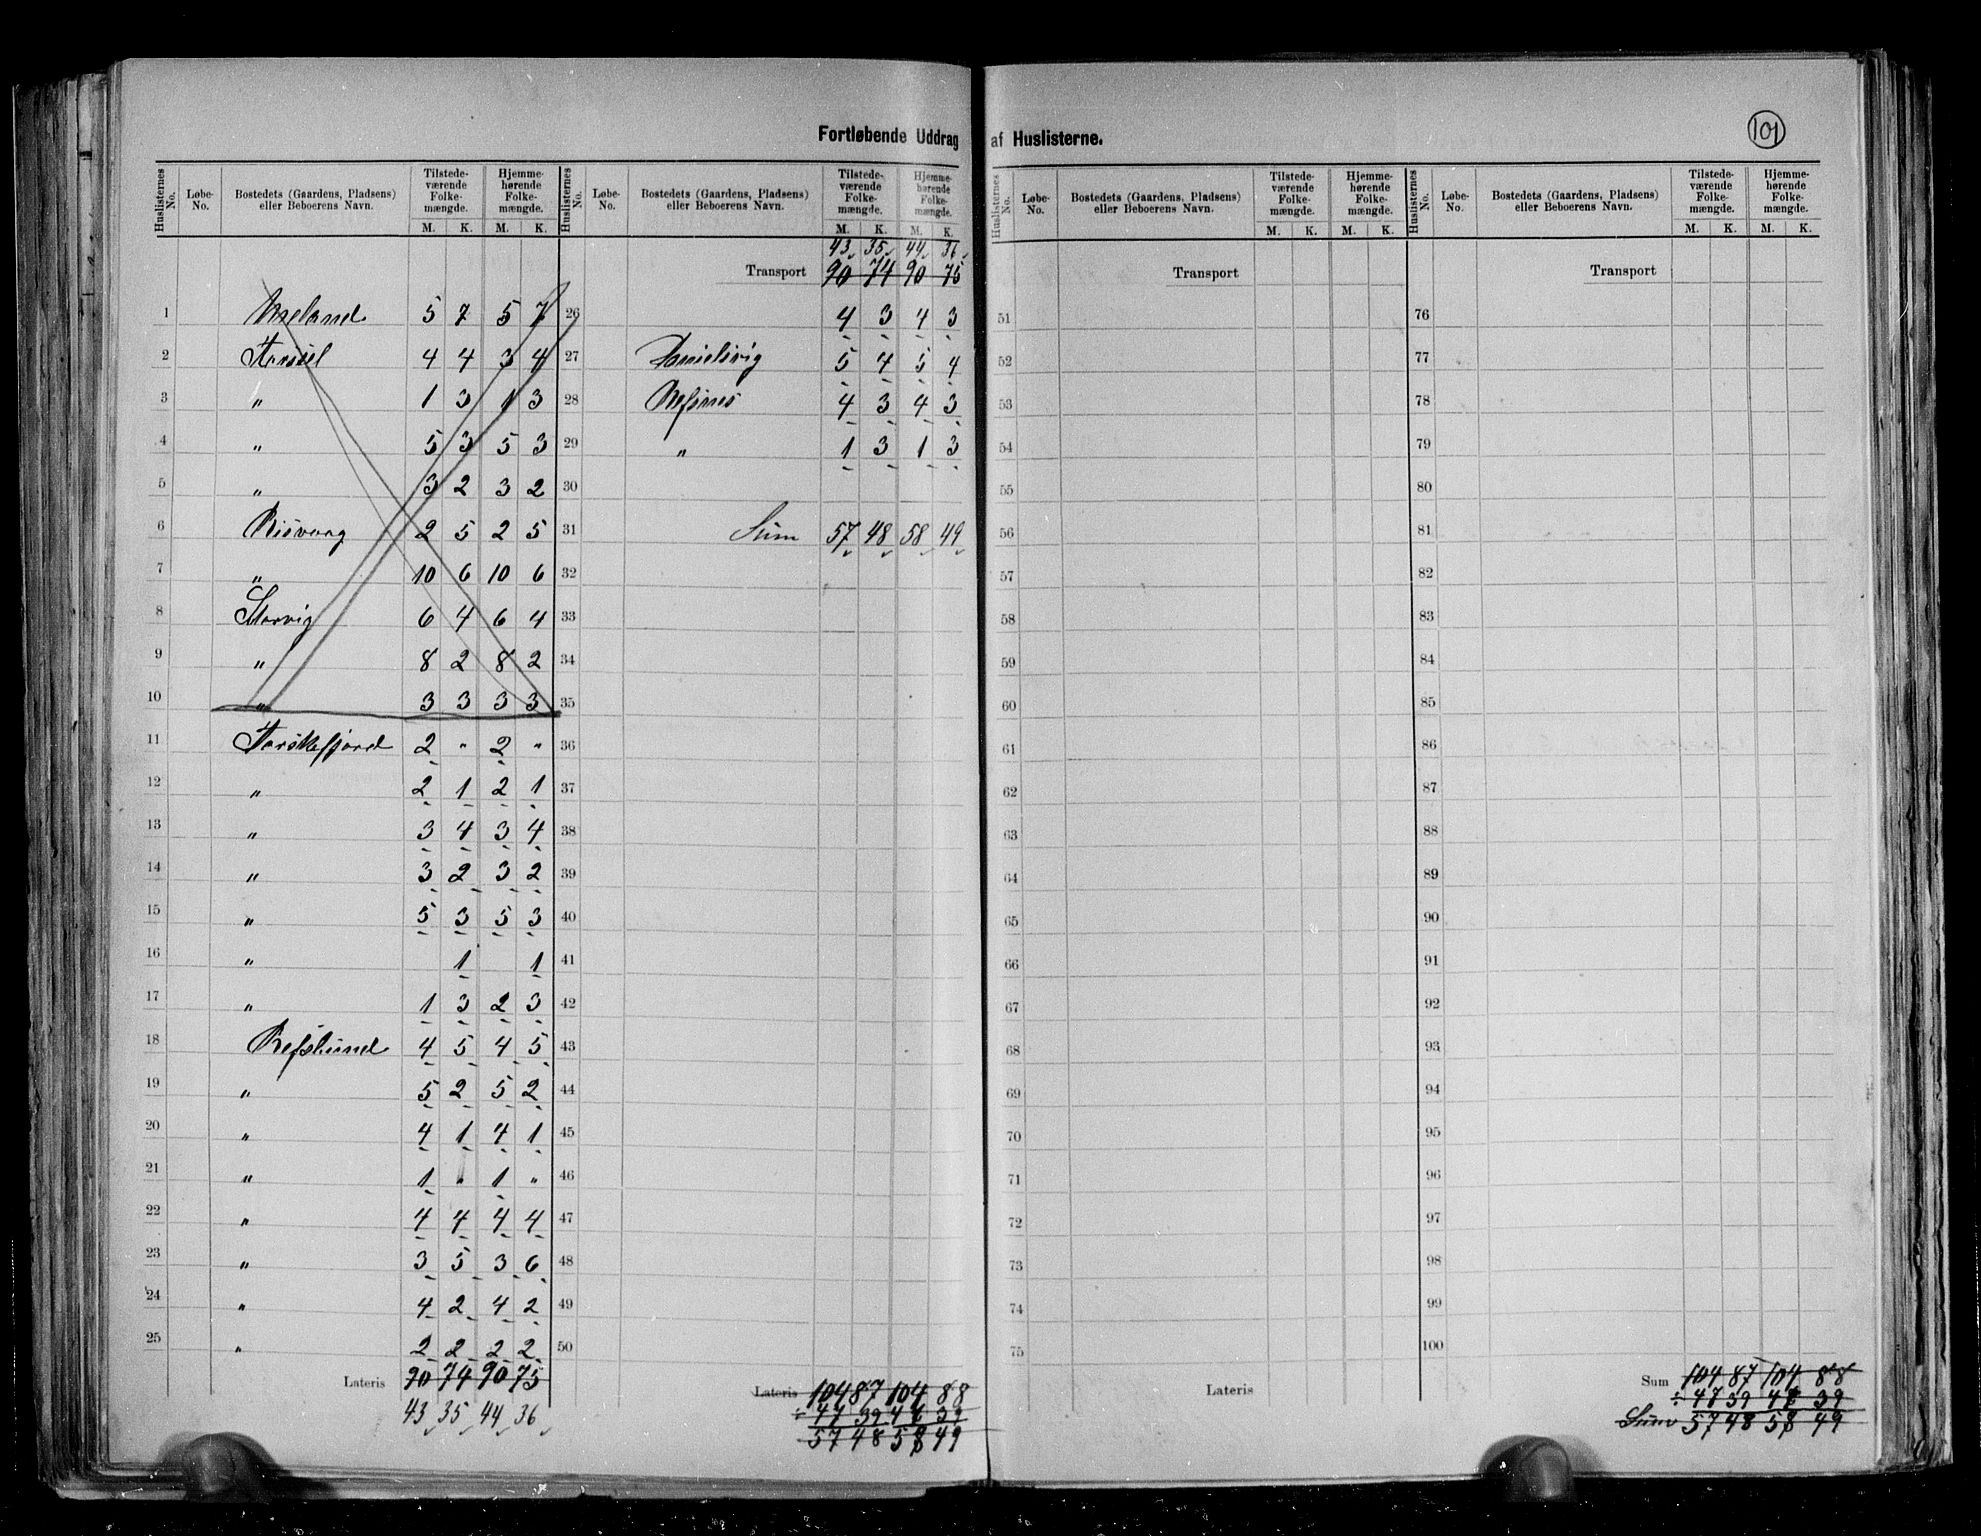 Fortløbende Uddrag af Huslisterne.
101
Huslisternes No. Løbe-No. Bostedets (Gaardens, Pladsens) eller Beboerens Navn. Tilstedeværende Folkemængde. M. K. Hjemmehørende Folkemængde. M. K.
1 5 7 5 7
2 4 4 3 4
3 " 1 3 1 3
4 " 5 3 5 3
5 " 3 2 3 2
6 Risvaag 2 5 2 5
7 " 10 6 10 6
8 Storvig 6 4 6 4
9 " 8 2 8 2
10 " 3 3 3 3
11 Torskefjord 2 " 2 "
12 " 2 1 2 1
13 " 3 4 3 4
14 " 3 2 3 2
15 " 5 3 5 3
16 " 1 1
17 " 1 3 2 3
18 Refslund 4 5 4 5
19 " 5 2 5 2
20 " 4 1 4 1
21 " 1 " 1 "
22 " 4 4 4 4
23 " 3 5 3 6
24 " 4 2 4 2
25 " 2 2 2 2
Lateris 90 74 90 75
43 35 44 36
Huslisternes No. Løbe-No. Bostedets (Gaardens, Pladsens) eller Beboerens Navn. Tilstedeværende Folkemængde. M. K. Hjemmehørende Folkemængde. M. K.
43 35 44 36
Transport 90 74 90 75
26 4 3 4 3
27 5 4 5 4
28 Refsnes 4 3 4 3
29 " 1 3 1 3
30
31 Sum 57 48 58 49
32
33
34
35
36
37
38
39
40
41
42
43
44
45
46
47
48
49
50
Lateris 104 87 104 88
÷ 47 39 46 39
57 48 58 49
Huslisternes No. Løbe-No. Bostedets (Gaardens, Pladsens) eller Beboerens Navn. Tilstedeværende Folkemængde. M. K. Hjemmehørende Folkemængde. M. K.
Transport
51
52
53
54
55
56
57
58
59
60
61
62
63
64
65
66
67
68
69
70
71
72
73
74
75
Lateris
Huslisternes No. Løbe-No. Bostedets (Gaardens, Pladsens) eller Beboerens Navn. Tilstedeværende Folkemængde. M. K. Hjemmehørende Folkemængde. M. K.
Transport
76
77
78
79
80
81
82
83
84
85
86
87
88
89
90
91
92
93
94
95
96
97
98
99
100
Sum 104 87 104 88
÷ 47 39 46 39
Sum 57 48 58 49